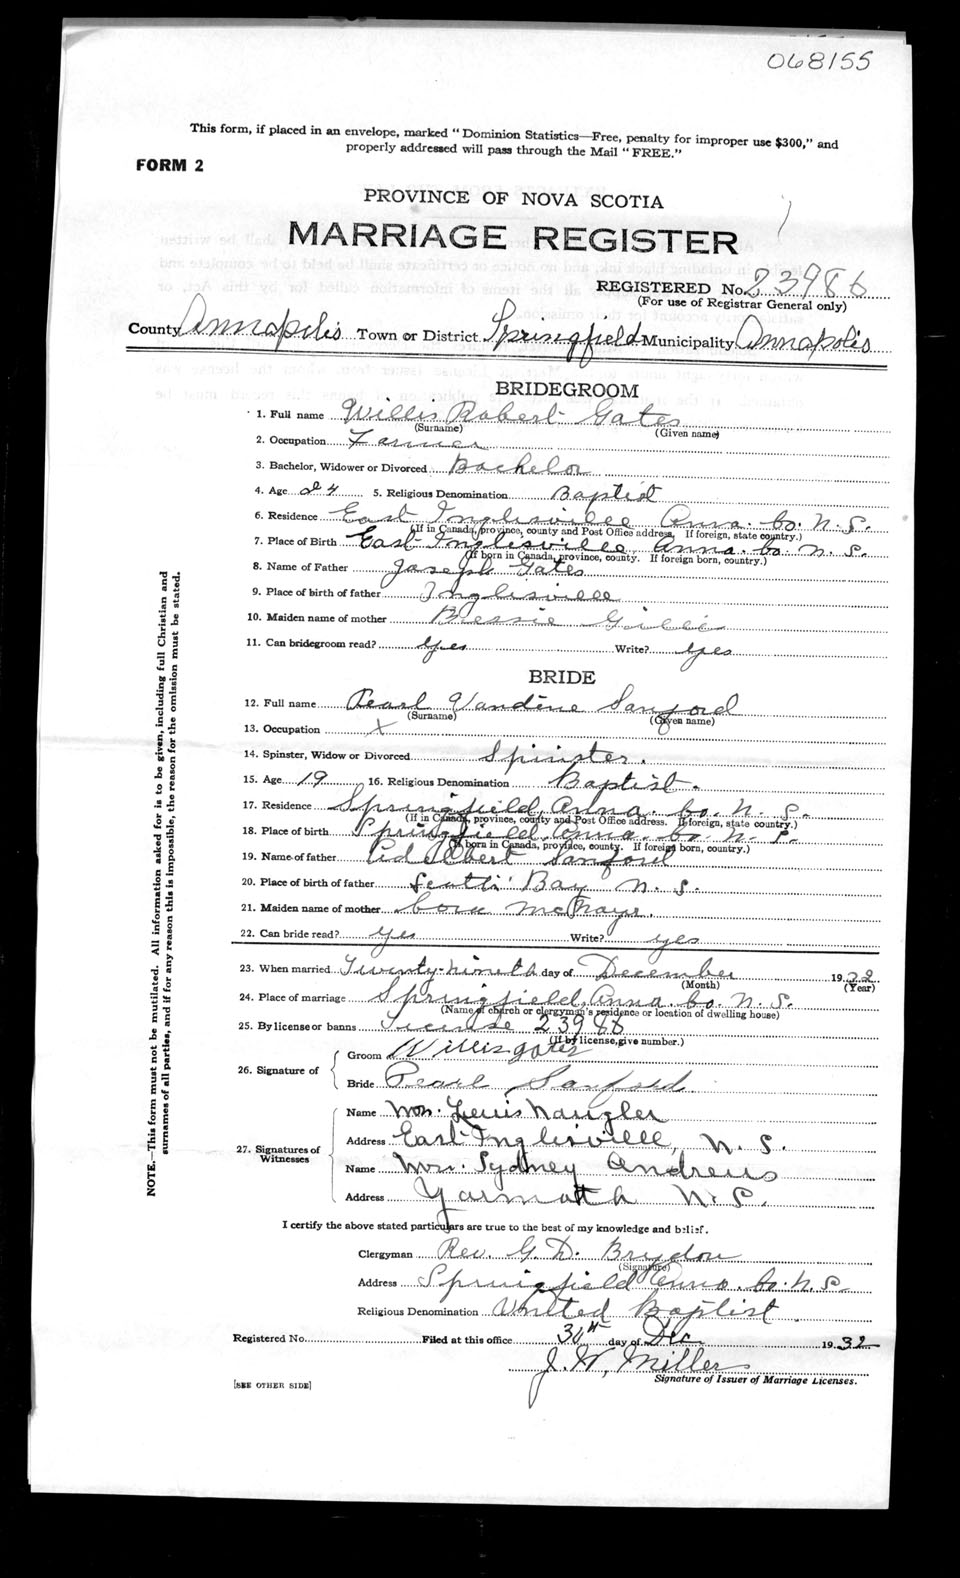 068155
This form, if placed in an envelope, marked "Dominion Statistics—Free, penalty for improper use $300," and
properly addressed will pass through the Mail "FREE."
FORM 2
PROVINCE OF NOVA SCOTIA
MARRIAGE REGISTER
REGISTERED No. 23986
(For use of Registrar General only)
County Annapolis Town or District Springfield Municipality Annapolis
BRIDEGROOM
1. Full name Willis Robert Gates
(Surname) (Given name)
2. Occupation Farmer
3. Bachelor, Widower or Divorced Bachelor
4. Age 24 5. Religious Denomination Baptist
6. Residence East Inglisville Anna. Co. N. S.
(If in Canada, province, county and Post Office address. If foreign, state country.)
7. Place of Birth East Inglisville, Anna. Co. N. S.
(If born in Canada, province, county. If foreign born, country.)
8. Name of Father Joseph Gates
9. Place of birth of father Inglisville
10. Maiden name of mother Bessie
11. Can bridegroom read? Yes Write? Yes
BRIDE
12. Full name Pearl Vandine Sanford
(Surname) (Given name)
13. Occupation X
14. Spinster, Widow or Divorced Spinster.
15. Age 19 16. Religious Denomination Baptist.
17. Residence Springfield, Anna. Co. N. S.
(If in Canada, province, county and Post Office address. If foreign, state country.)
18. Place of birth Springfield, Anna. Co. N. S.
(If born in Canada, province, county. If foreign born, country.)
19. Name of father Adelbert Sanford
20. Place of birth of father Scotts Bay N. S.
21. Maiden name of mother Cora
22. Can bride read? Yes Write? yes
23. When married Twenty-nineth day of December 1932
(Month) (Year)
24. Place of marriage Springfield, Anna. Co. N. S.
(Name of church or clergyman's residence or location of dwelling house)
25. By license or banns License 23986
(If by license, give number.)
26. Signature of
Groom Willis Gates
Bride Pearl Sanford
27. Signatures of Witnesses
Name Mrs. Lewis Naugler
Address East Inglisville, N. S.
Name Mrs. Sydney Andrews
Address Yarmouth N. S.
I certify the above stated particulars are true to the best of my knowledge and belief.
Clergyman Rev. G. D. Brydon
(Signature)
Address Springfield Anna. Co. N. S.
Religious Denomination United Baptist
Registered No. Filed at this office 30th day of Dec 1932
J. W. Miller
Signature of Issuer of Marriage Licenses.
[SEE OTHER SIDE]
NOTE.—This form must not be mutilated. All information asked for is to be given, including full Christian and
surnames of all parties, and if for any reason this is impossible, the reason for the omission must be stated.